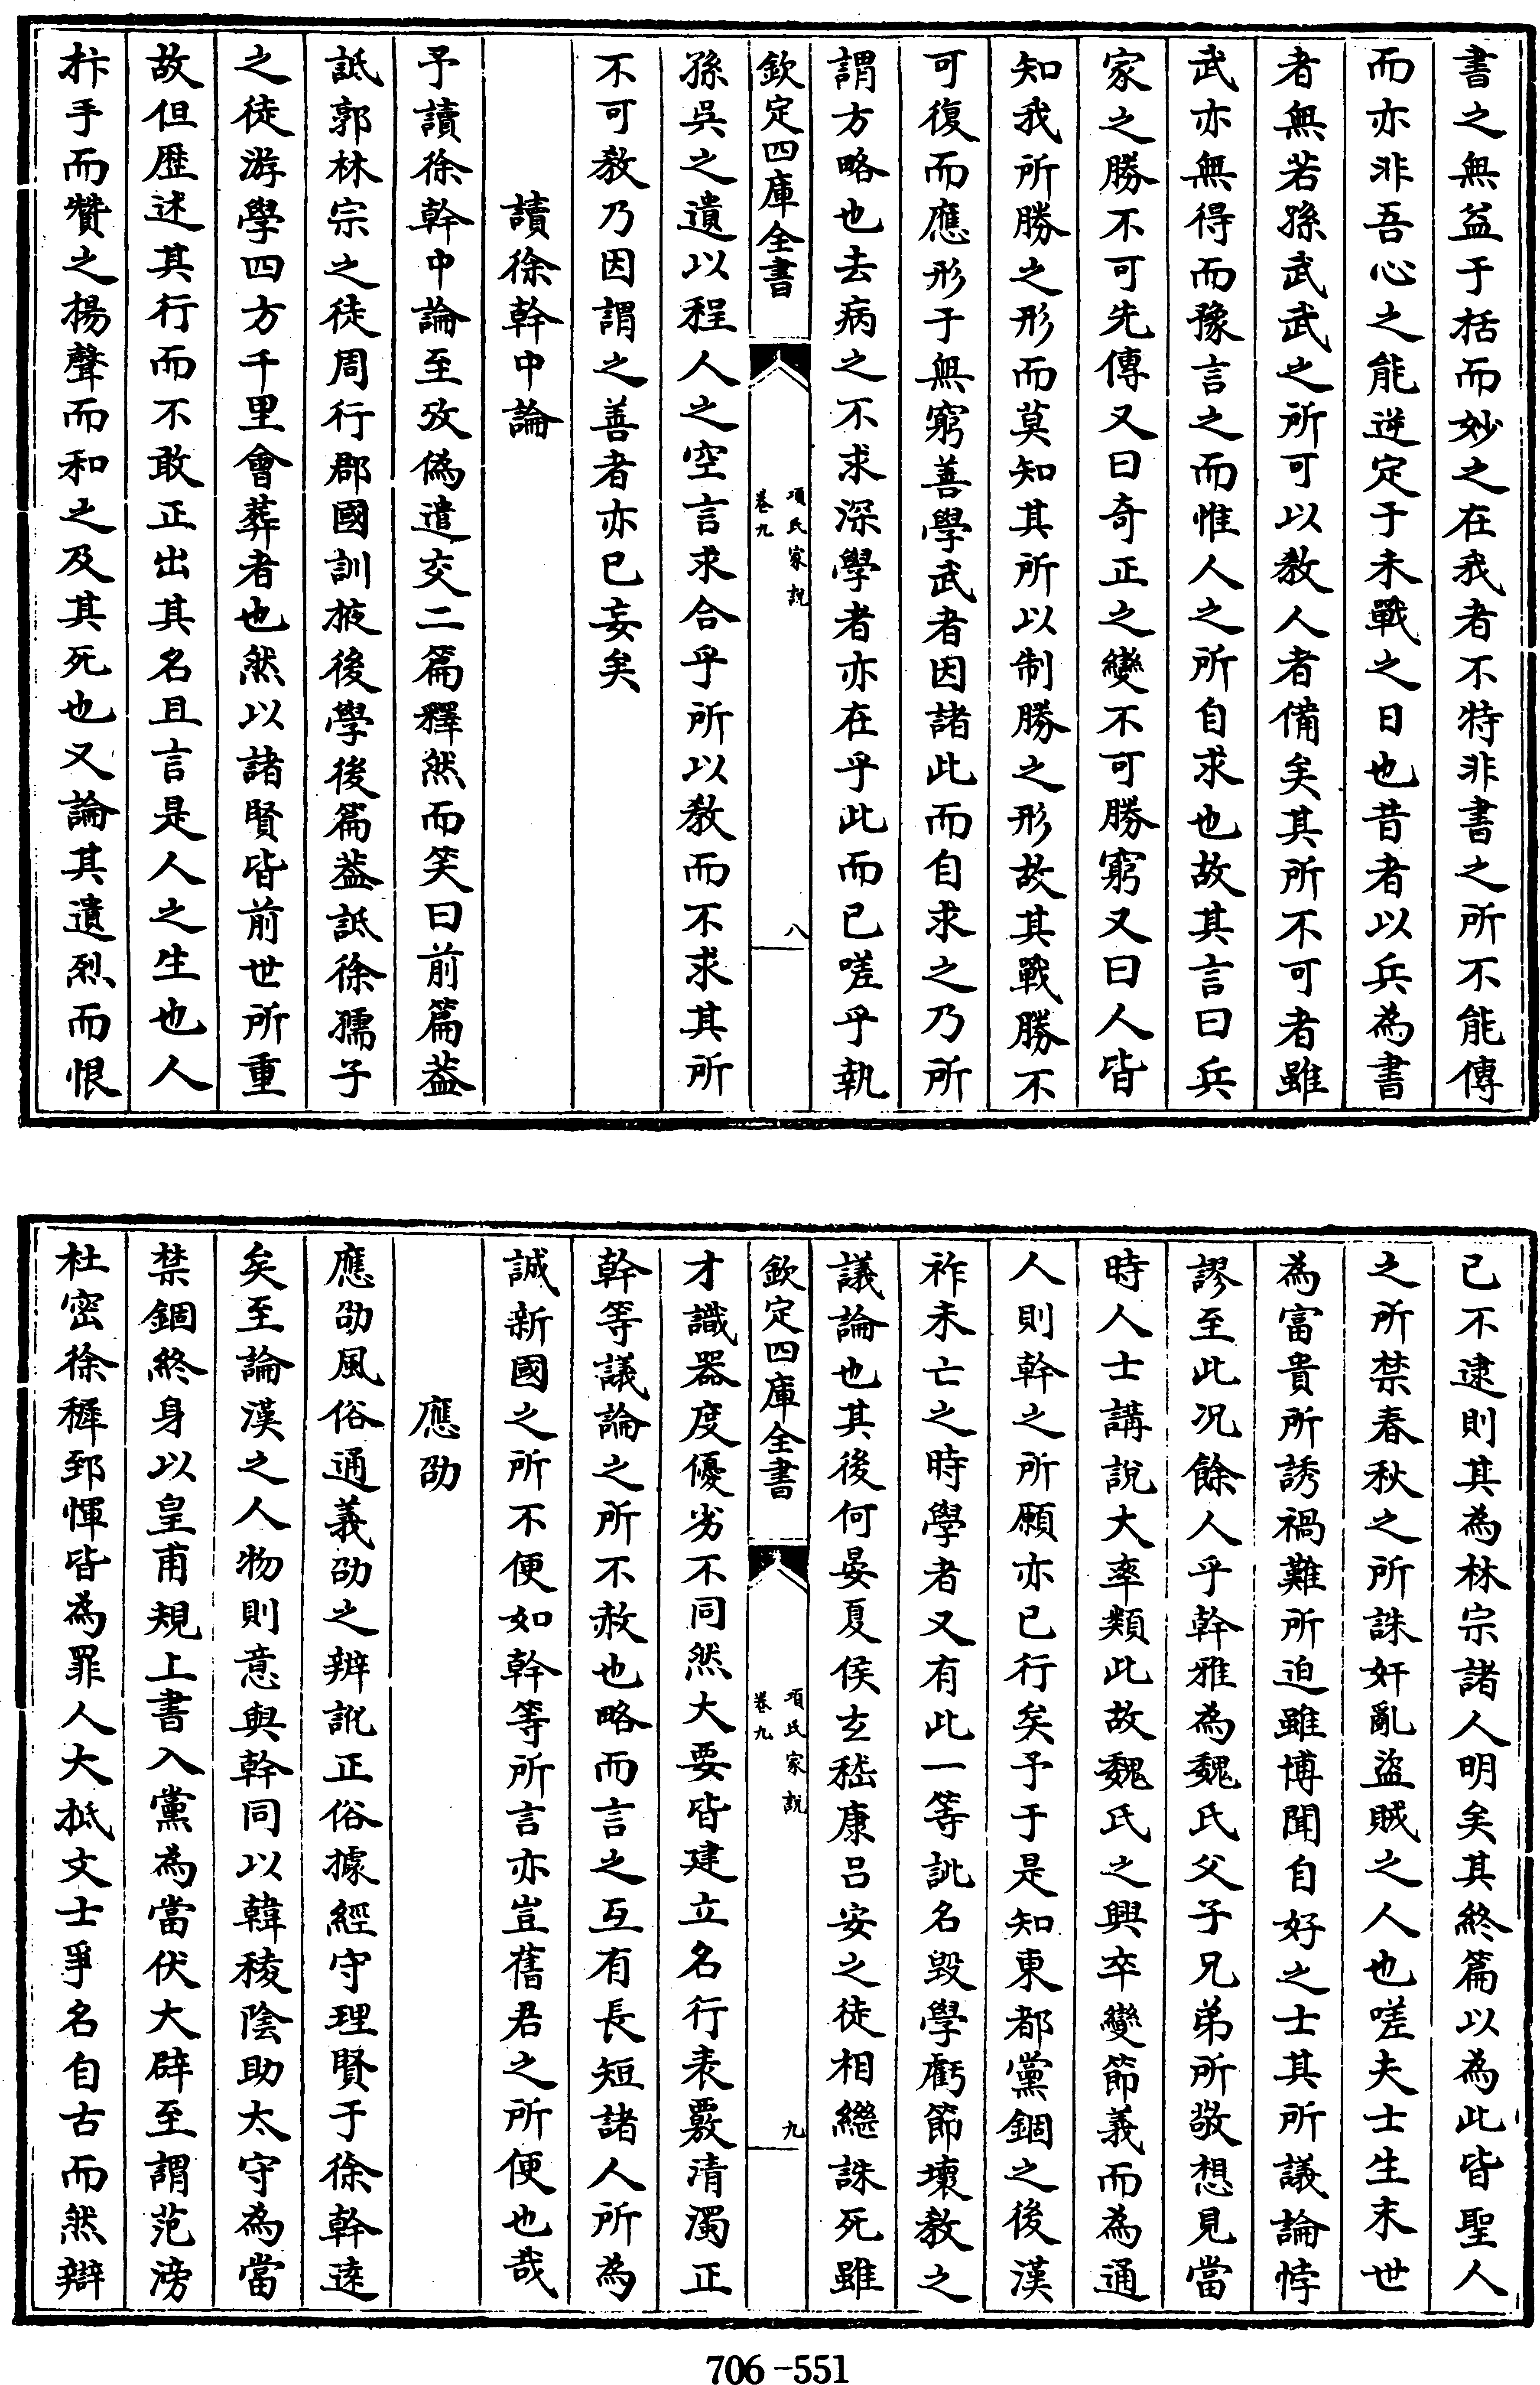 書之無益于括而妙之在我者不特非書之所不能傳
而亦非吾心之能逆定于未戰之日也昔者以兵為書
者無若孫武武之所可以教人者備矣其所不可者雖
武亦無得而豫言之而惟人之所自求也故其言曰兵
家之勝不可先傳又曰奇正之變不可勝窮又曰人皆
知我所勝之形而莫知其所以制勝之形故其戰勝不
可復而應形于無窮善學武者因諸此而自求之乃所
謂方略也去病之不求深學者亦在乎此而已嗟乎執
欽定四庫全書
項氏家說
卷九
八
孫吳之遺以程人之空言求合乎所以教而不求其所
不可教乃因謂之善者亦已妄矣
讀徐幹中論
予讀徐幹中論至攷偽遣交二篇釋然而笑曰前篇葢
詆郭林宗之徒周行郡國訓掖後學後篇葢詆徐孺子
之徒游學四方千里會葬者也然以諸賢皆前世所重
故但歷述其行而不敢正出其名且言是人之生也人
抃手而贊之揚聲而和之及其死也又論其遺烈而恨
已不逮則其為林宗諸人明矣其終篇以為此皆聖人
之所禁春秋之所誅奸亂盜賊之人也嗟夫士生末世
為富貴所誘禍難所迫雖博聞自好之士其所議論悖
謬至此况餘人乎幹雅為魏氏父子兄弟所敬想見當
時人士講說大率類此故魏氏之興卒變節義而為通
人則幹之所願亦已行矣予于是知東都黨錮之後漢
祚未亡之時學者又有此一等訿名毀學虧節壞教之
議論也其後何晏夏侯玄嵇康吕安之徒相繼誅死雖
欽定四庫全書
項氏家說
卷九
九
才識器度優劣不同然大要皆建立名行表覈清濁正
幹等議論之所不赦也略而言之互有長短諸人所為
誠新國之所不便如幹等所言亦豈舊君之所便也哉
應劭
應劭風俗通義劭之辨訛正俗據經守理賢于徐幹遠
矣至論漢之人物則意與幹同以韓稜陰助太守為當
禁錮終身以皇甫規上書入黨為當伏大辟至謂范滂
杜密徐穉郅惲皆為罪人大抵文士爭名自古而然辯
706-551